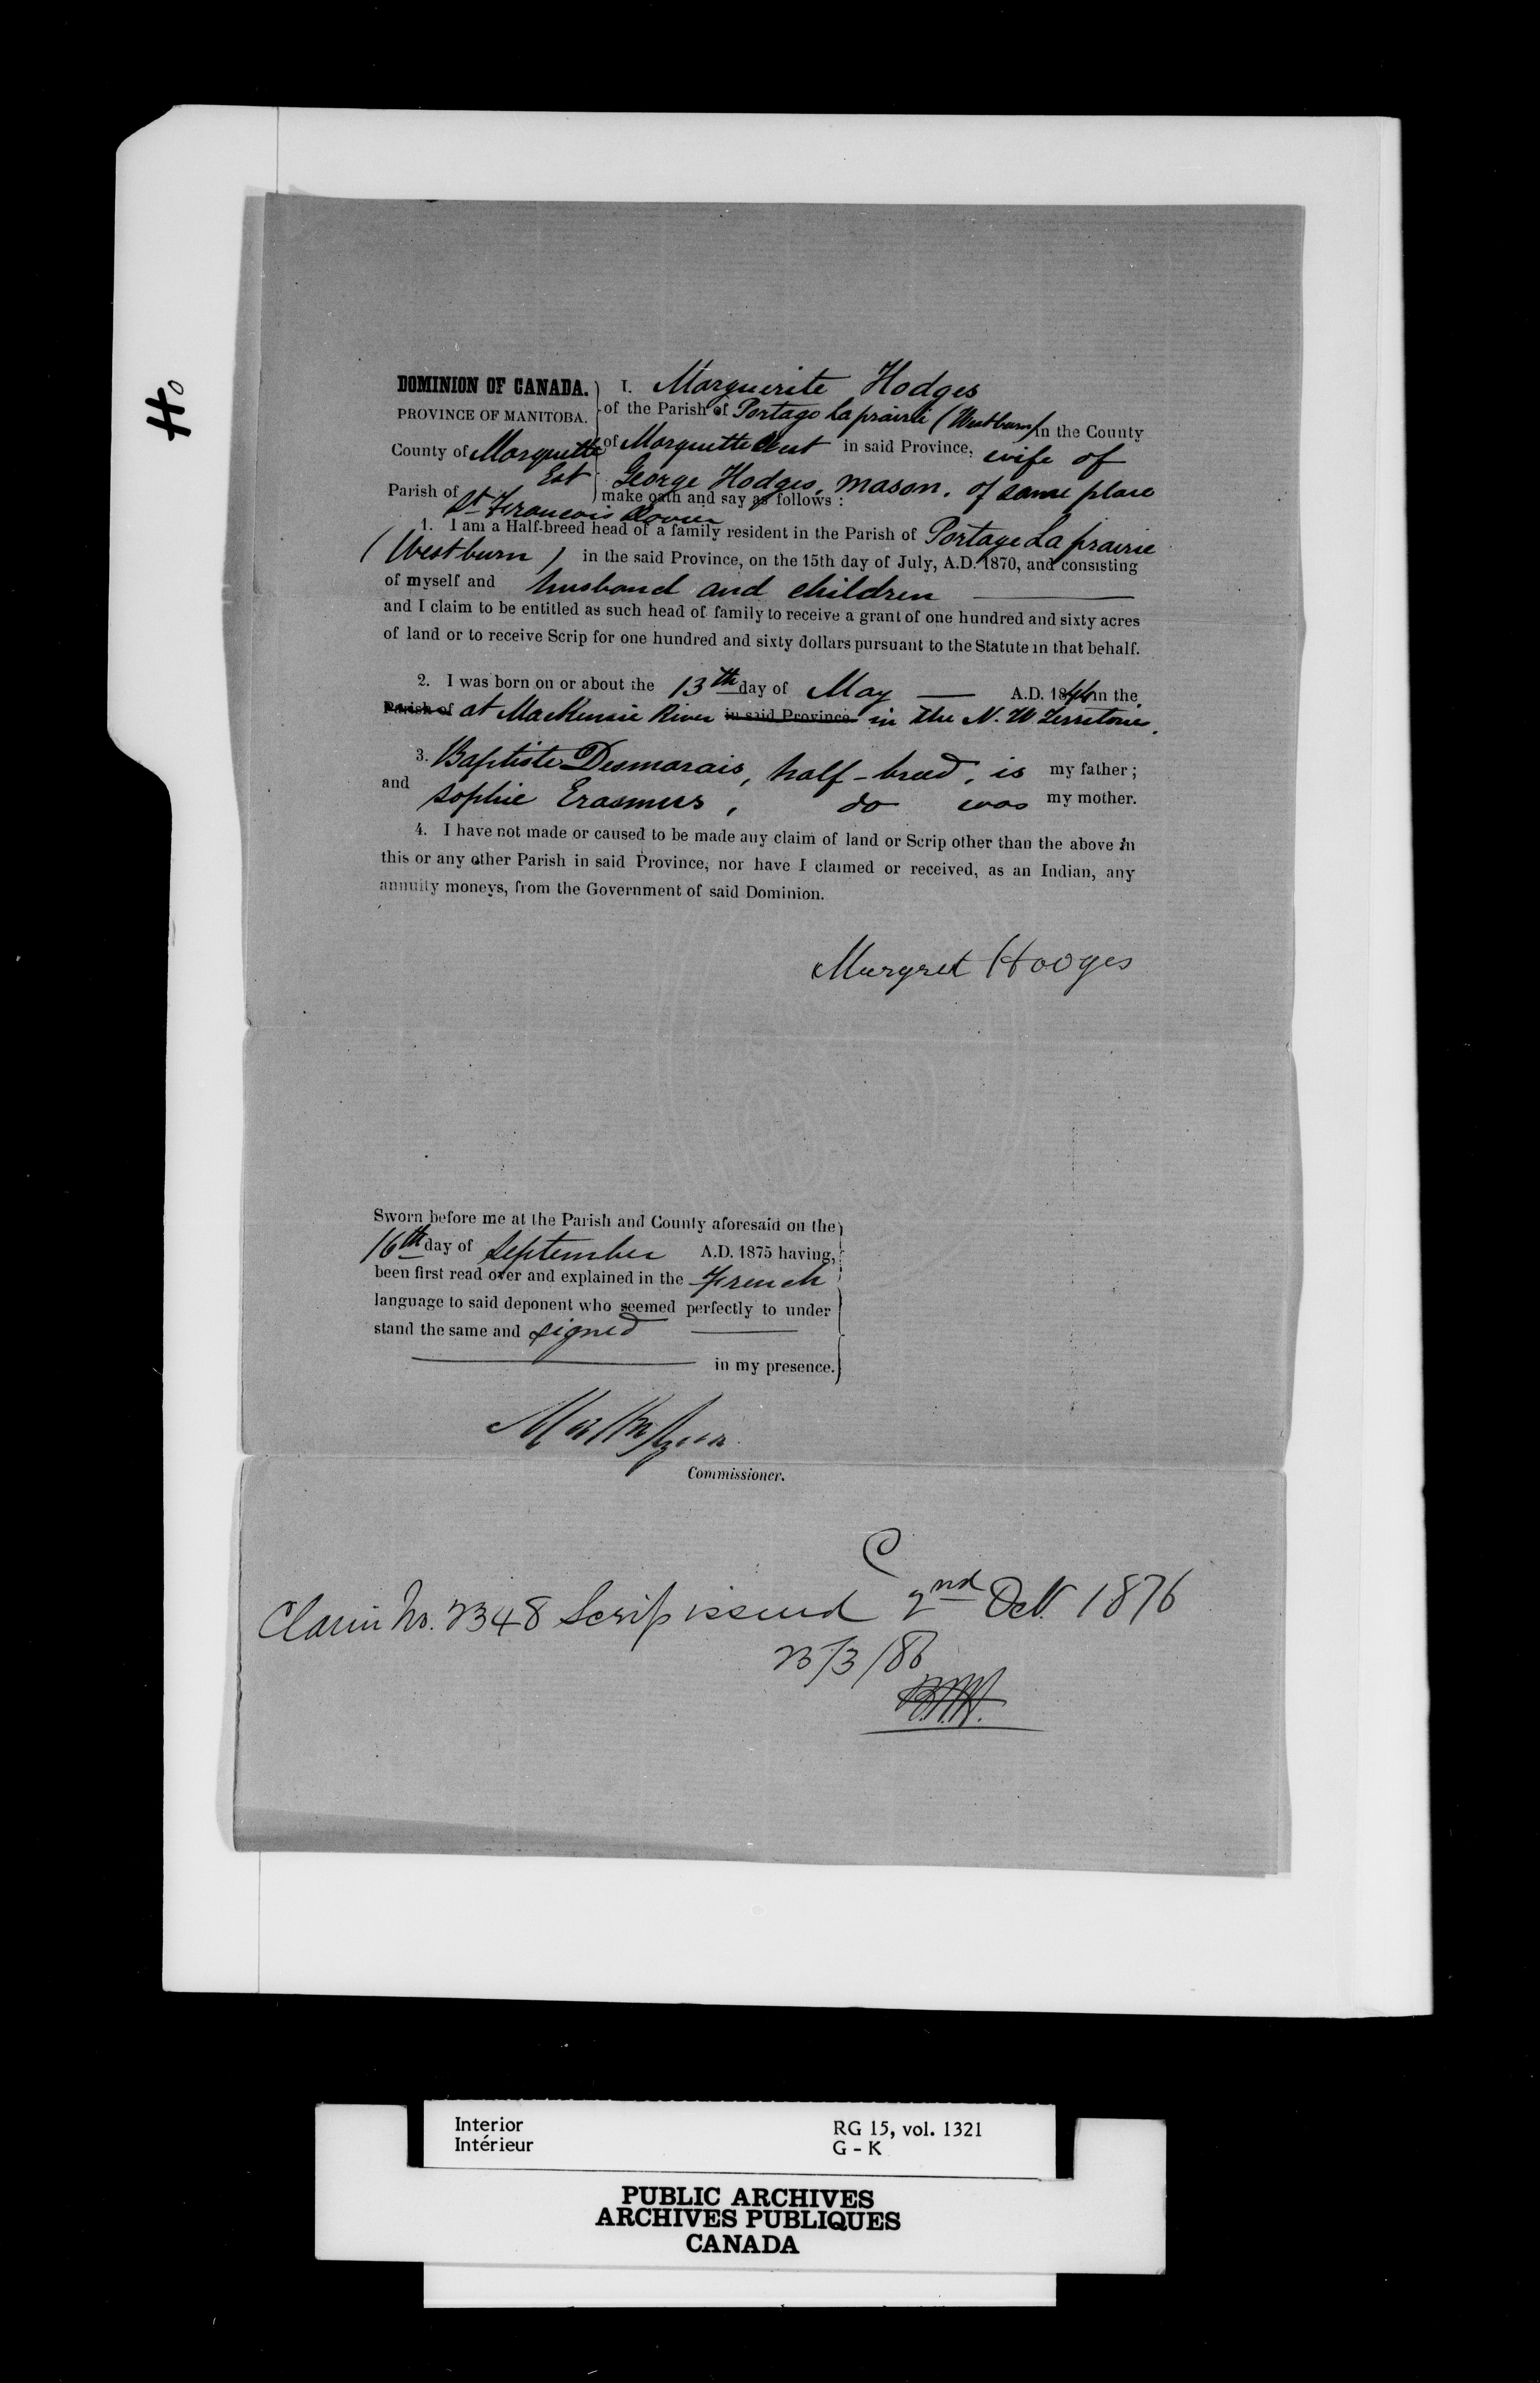 Ho
DOMINION OF CANADA. I. Marguerite Hodges
PROVINCE OF MANITOBA. of the Parish of Portage Laprairie (Westburn) in the County
County of Marquette of Marquette West in said Province, wife of
Est George Hodges, mason, of same place
Parish of St. Francois Xavier make oath and say as follows:
1. I am a Half-breed head of a family resident in the Parish of Portage La prairie
(Westburn) in the said Province, on the 15th day of July, A.D. 1870, and consisting
of myself and husband and children
and I claim to be entitled as such head of family to receive a grant of one hundred and sixty acres
of land or to receive Scrip for one hundred and sixty dollars pursuant to the Statute in that behalf.
2. I was born on or about the 13th day of May A.D. 18 in the
Parish of at MacKenzie River in said Province in the N. W Territories.
3. Baptiste Desmarais, half-breed, is my father;
and Sophie Erasmus, do was my mother.
4. I have not made or caused to be made any claim of land or Scrip other than the above in
this or any other Parish in said Province, nor have I claimed or received, as an Indian, any
annuity moneys, from the Government of said Dominion.
Murgret Hodges
Sworn before me at the Parish and County aforesaid on the
16th day of September A.D. 1875 having,
been first read over and explained in the French
language to said deponent who seemed perfectly to under
stand the same and signed
in my presence.
Commissioner.
C
Claim No. 2348 Scrip issued 2nd Oct. 1876
23/3/86
Interior RG 15, vol. 1321
Intérieur G - K
PUBLIC ARCHIVES
ARCHIVES PUBLIQUES
CANADA